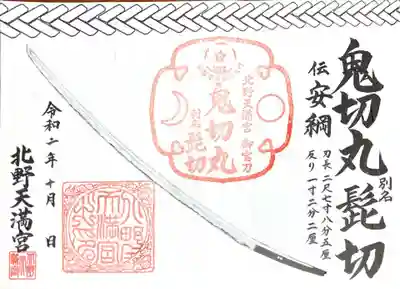 鬼切丸 別名 髭切
伝 安綱
刀長 二尺七寸八分五厘
反り 一寸二分二厘
北野天満宮 御宮刀
鬼切丸
別名
髭切
令和二年 十月 日
北野天満宮